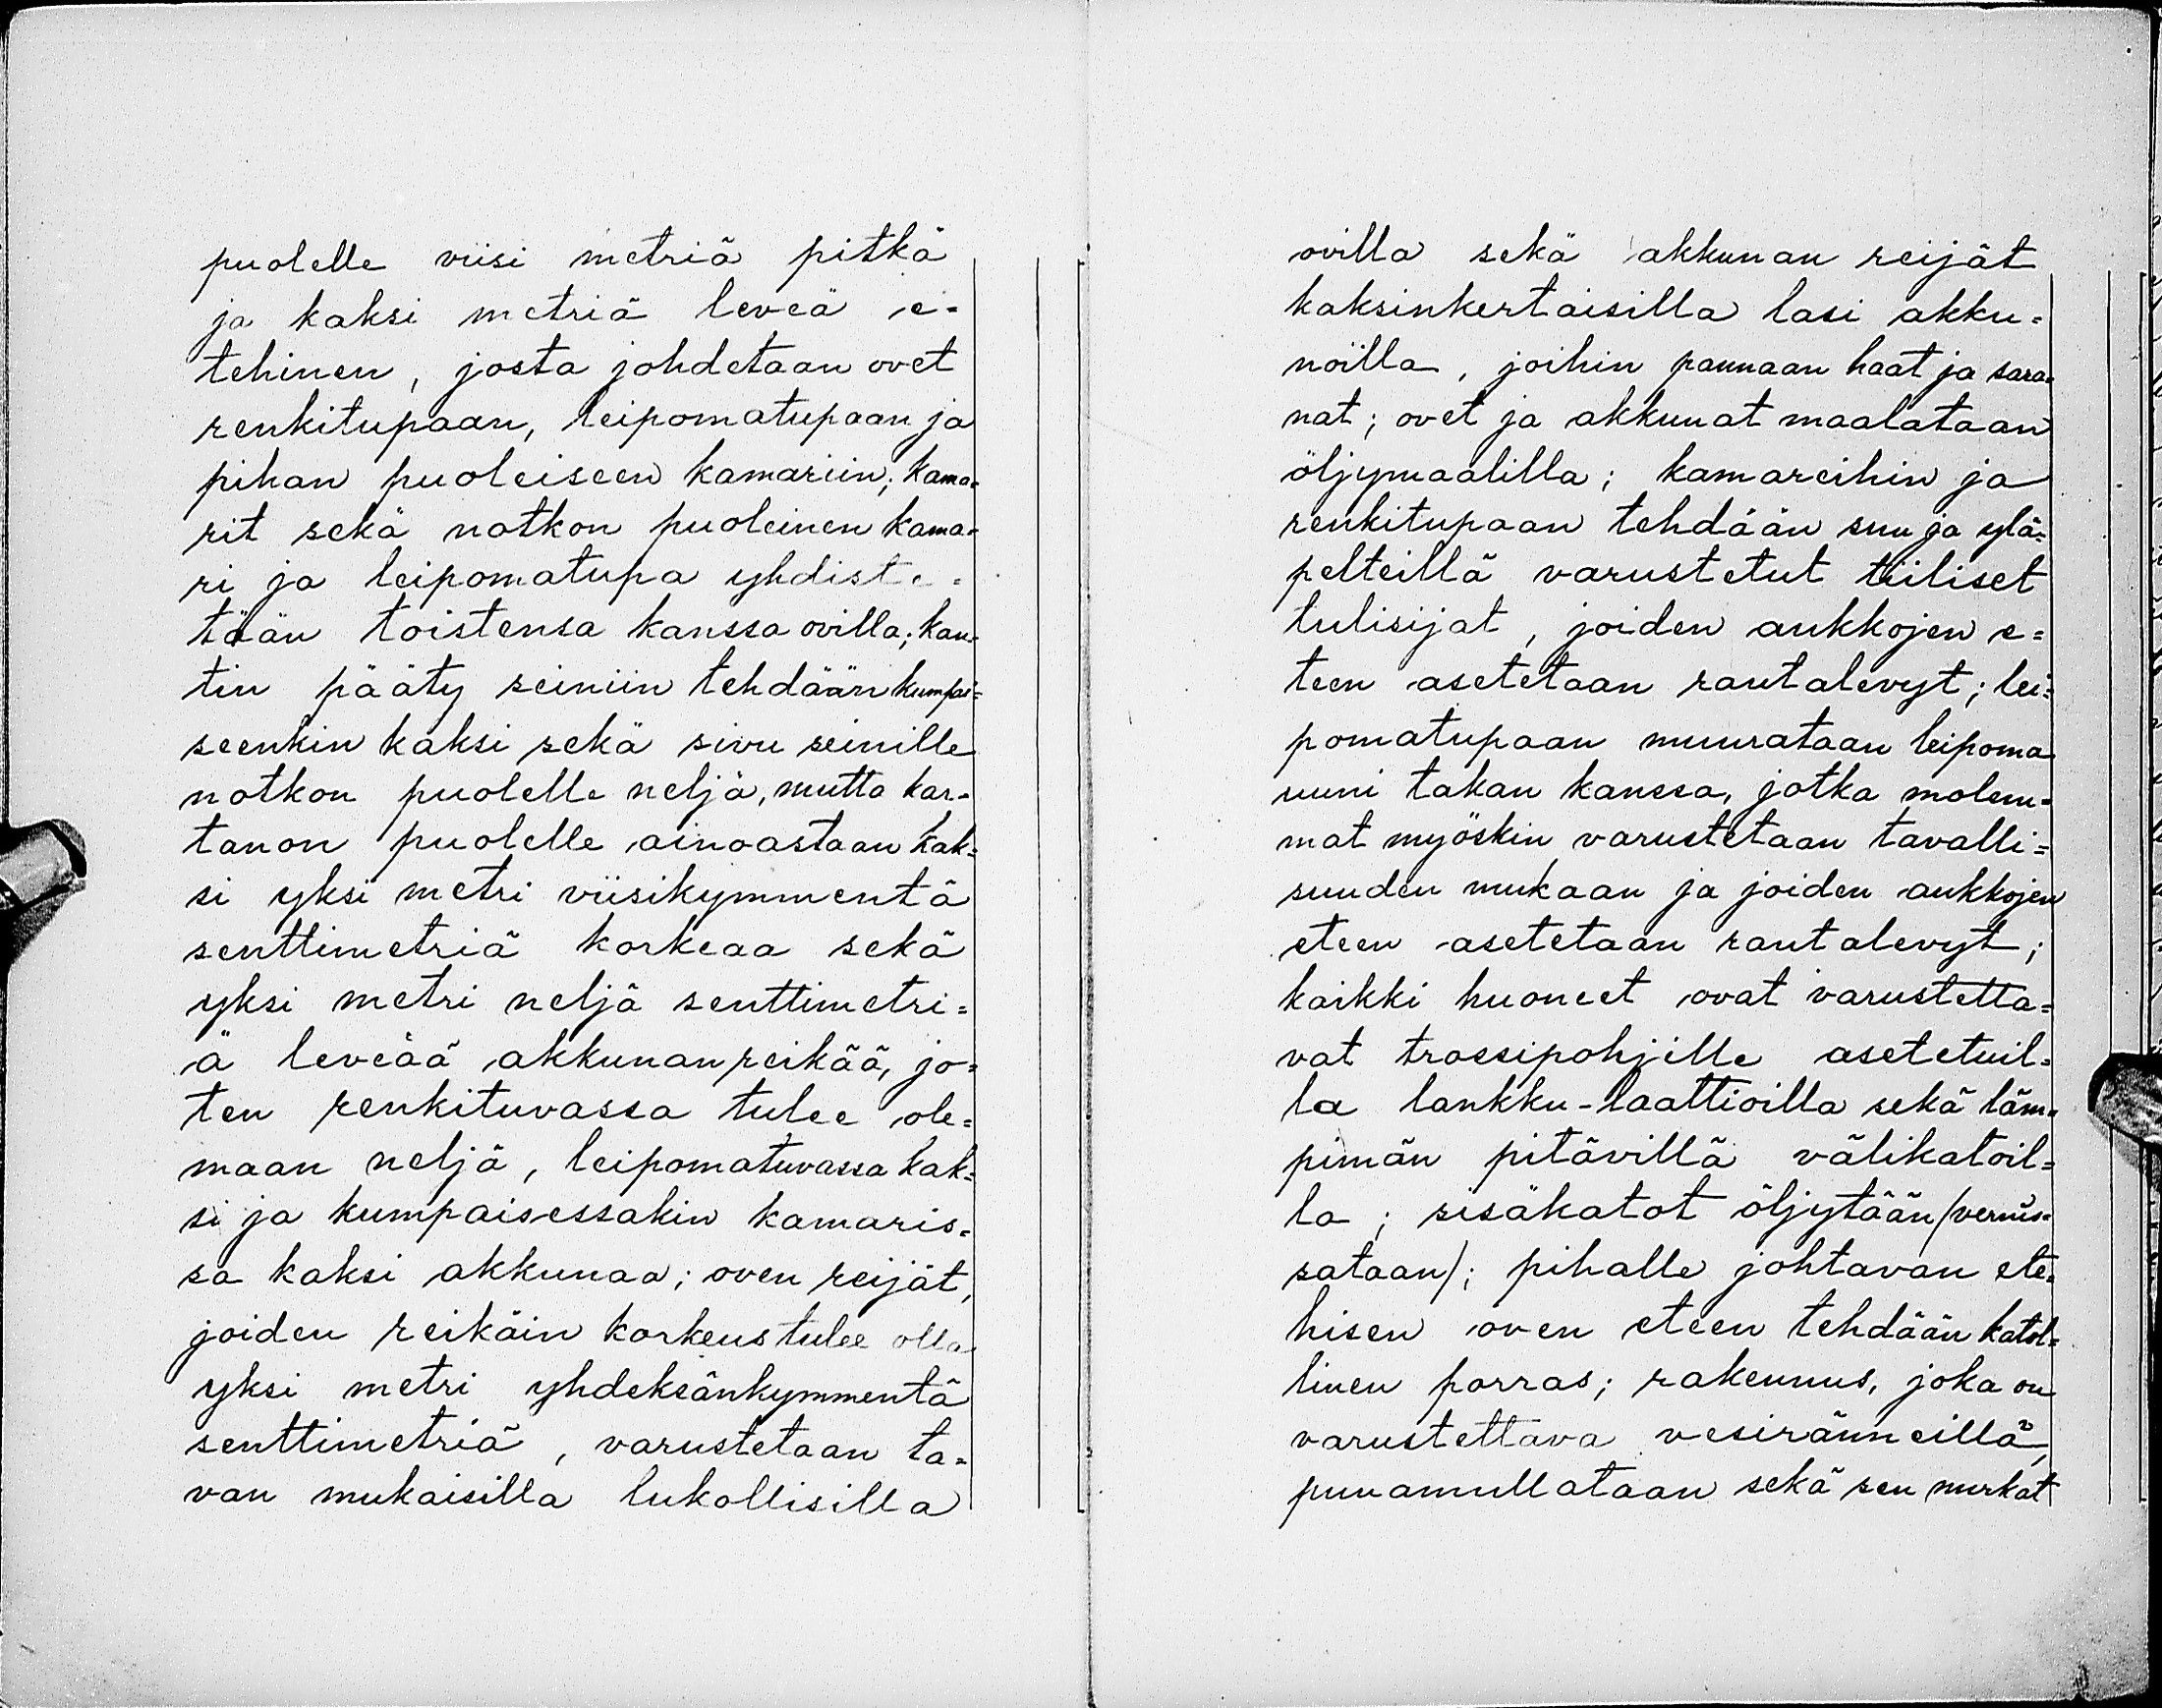 puolelle viisi metriä pitkä
ja kaksi metriä leveä e-
tehinen, josta johdetaan ovet
renkitupaan, leipomatupaan ja
pihan puoleiseen kamariin; kama=
rit sekä notkon puoleinen kama=
ri ja leipomatupa yhdiste=
tään toistensa kanssa ovilla; kan=
tin pääty seiniin tehdään kumpai=
seenkin kaksi sekä sivu seinille
notkon puolelle neljä, mutta kar=
tanon puolelle ainoastaan kak=
si yksi metri viisikymmentä
senttimetriä korkeaa sekä
yksi metri neljä senttimetri=
ä leveää akkunanreikää, jo=
ten renkituvassa tulee ole=
maan neljä, leipomatuvassa kak=
si ja kumpaisessakin kamaris=
sa kaksi akkunaa; oven reijät,
joiden reikäin korkeus tulee olla
yksi metri yhdeksänkymmentä
senttimetriä, varustetaan ta=
van mukaisilla lukollisilla
ovilla sekä akkunan reijät
kaksinkertaisilla lasi akku=
noilla, joihin pannaan haat ja sara=
nat; ovet ja akkunat maalataan
öljymaalilla; kamareihin ja
renkitupaan tehdään suu ja ylä=
pelteillä varustetut tiiliset
tulisijat, joiden aukkojen e=
teen asetetaan rautalevyt; lei=
pomatupaan muurataan leipoma
uuni takan kanssa, jotka molem=
mat myöskin varustetaan tavalli=
suuden mukaan ja joiden aukkojen
eteen asetetaan rautalevyt;
kaikki huoneet ovat varustetta=
vat trossipohjille asetetuil=
la lankku-laattioilla sekä läm=
pimän pitävillä välikatoil=
la; sisäkatot öljytään /vernis=
sataan/; pihalle johtavan ete=
hisen oven eteen tehdään katol=
linen porras; rakennus, joka on
varustettava vesiränneillä,
punamullataan sekä sen nurkat